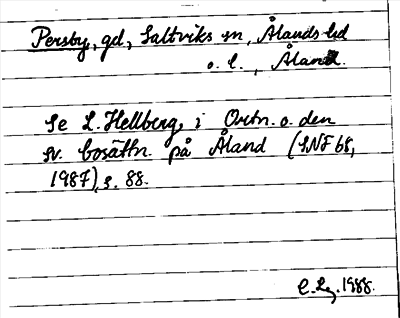 Persby, gd, Saltviks sn, Ålands hd
o. l., Åland.
Se L. Hellberg, i Ortn. o. den
sv. bosättn. på Åland (SNF 68,
1987), s. 88.
1988.